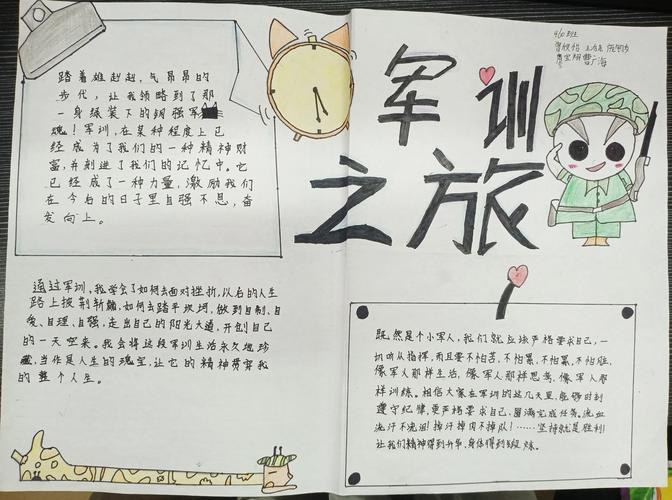 踏着雄赳赳，气昂昂的
步代，让我领略到了那
一身绿装下的钢强军
魂！军训，在某种程度上已
经成为了我们的一种精神财
富，并刻进了我们的记忆中。它
已经成了一种力量，激励我们
在今后的日子里自强不息，奋
发向上。
军训
之旅
通过军训，我学会了如何去面对挫折，以后的人生
路上披荆斩棘，如何去踏平坎坷，做到自制、自
爱、自理、自强，走出自己的阳光大道，开创自己
的一天空来。我会将这段军训生活永久地珍
藏，当作是人生的瑰宝，让它的精神贯穿我
的整个人生。
既然是个小军人，我们就应该严格要求自己，一
切听从指挥，而且要不怕苦、不怕累、不怕脏，
像军人那样生活，像军人那样思考，像军人那
样训练。相信大家在军训的这几天里，能够时刻
遵守纪律，更严格要求自己，圆满完成任务。流血
流汗不流泪！掉汗掉肉不掉队！……坚持就是胜利！
让我们精神得到升华，身体得到锻炼。